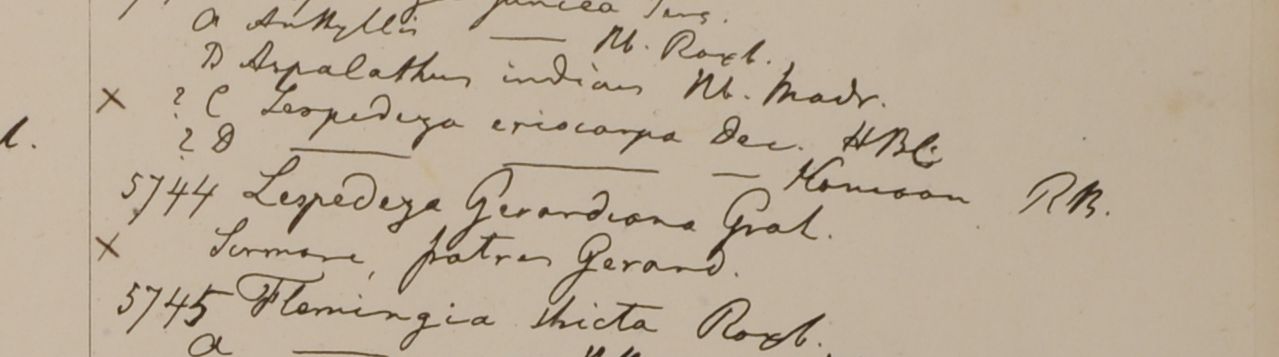 juncea Pers.
a Anthyllis — Hb. Roxb.
B Aspalathus indicus Hb. Madr.
× ? C Lespedeza eriocarpa Dec. HBC
l. ? D — — — Kamaon RB.
5744 Lespedeza Gerardiana Grah.
× Sirmore, patres Gerard.
5745 Flemingia stricta Roxb.
a —